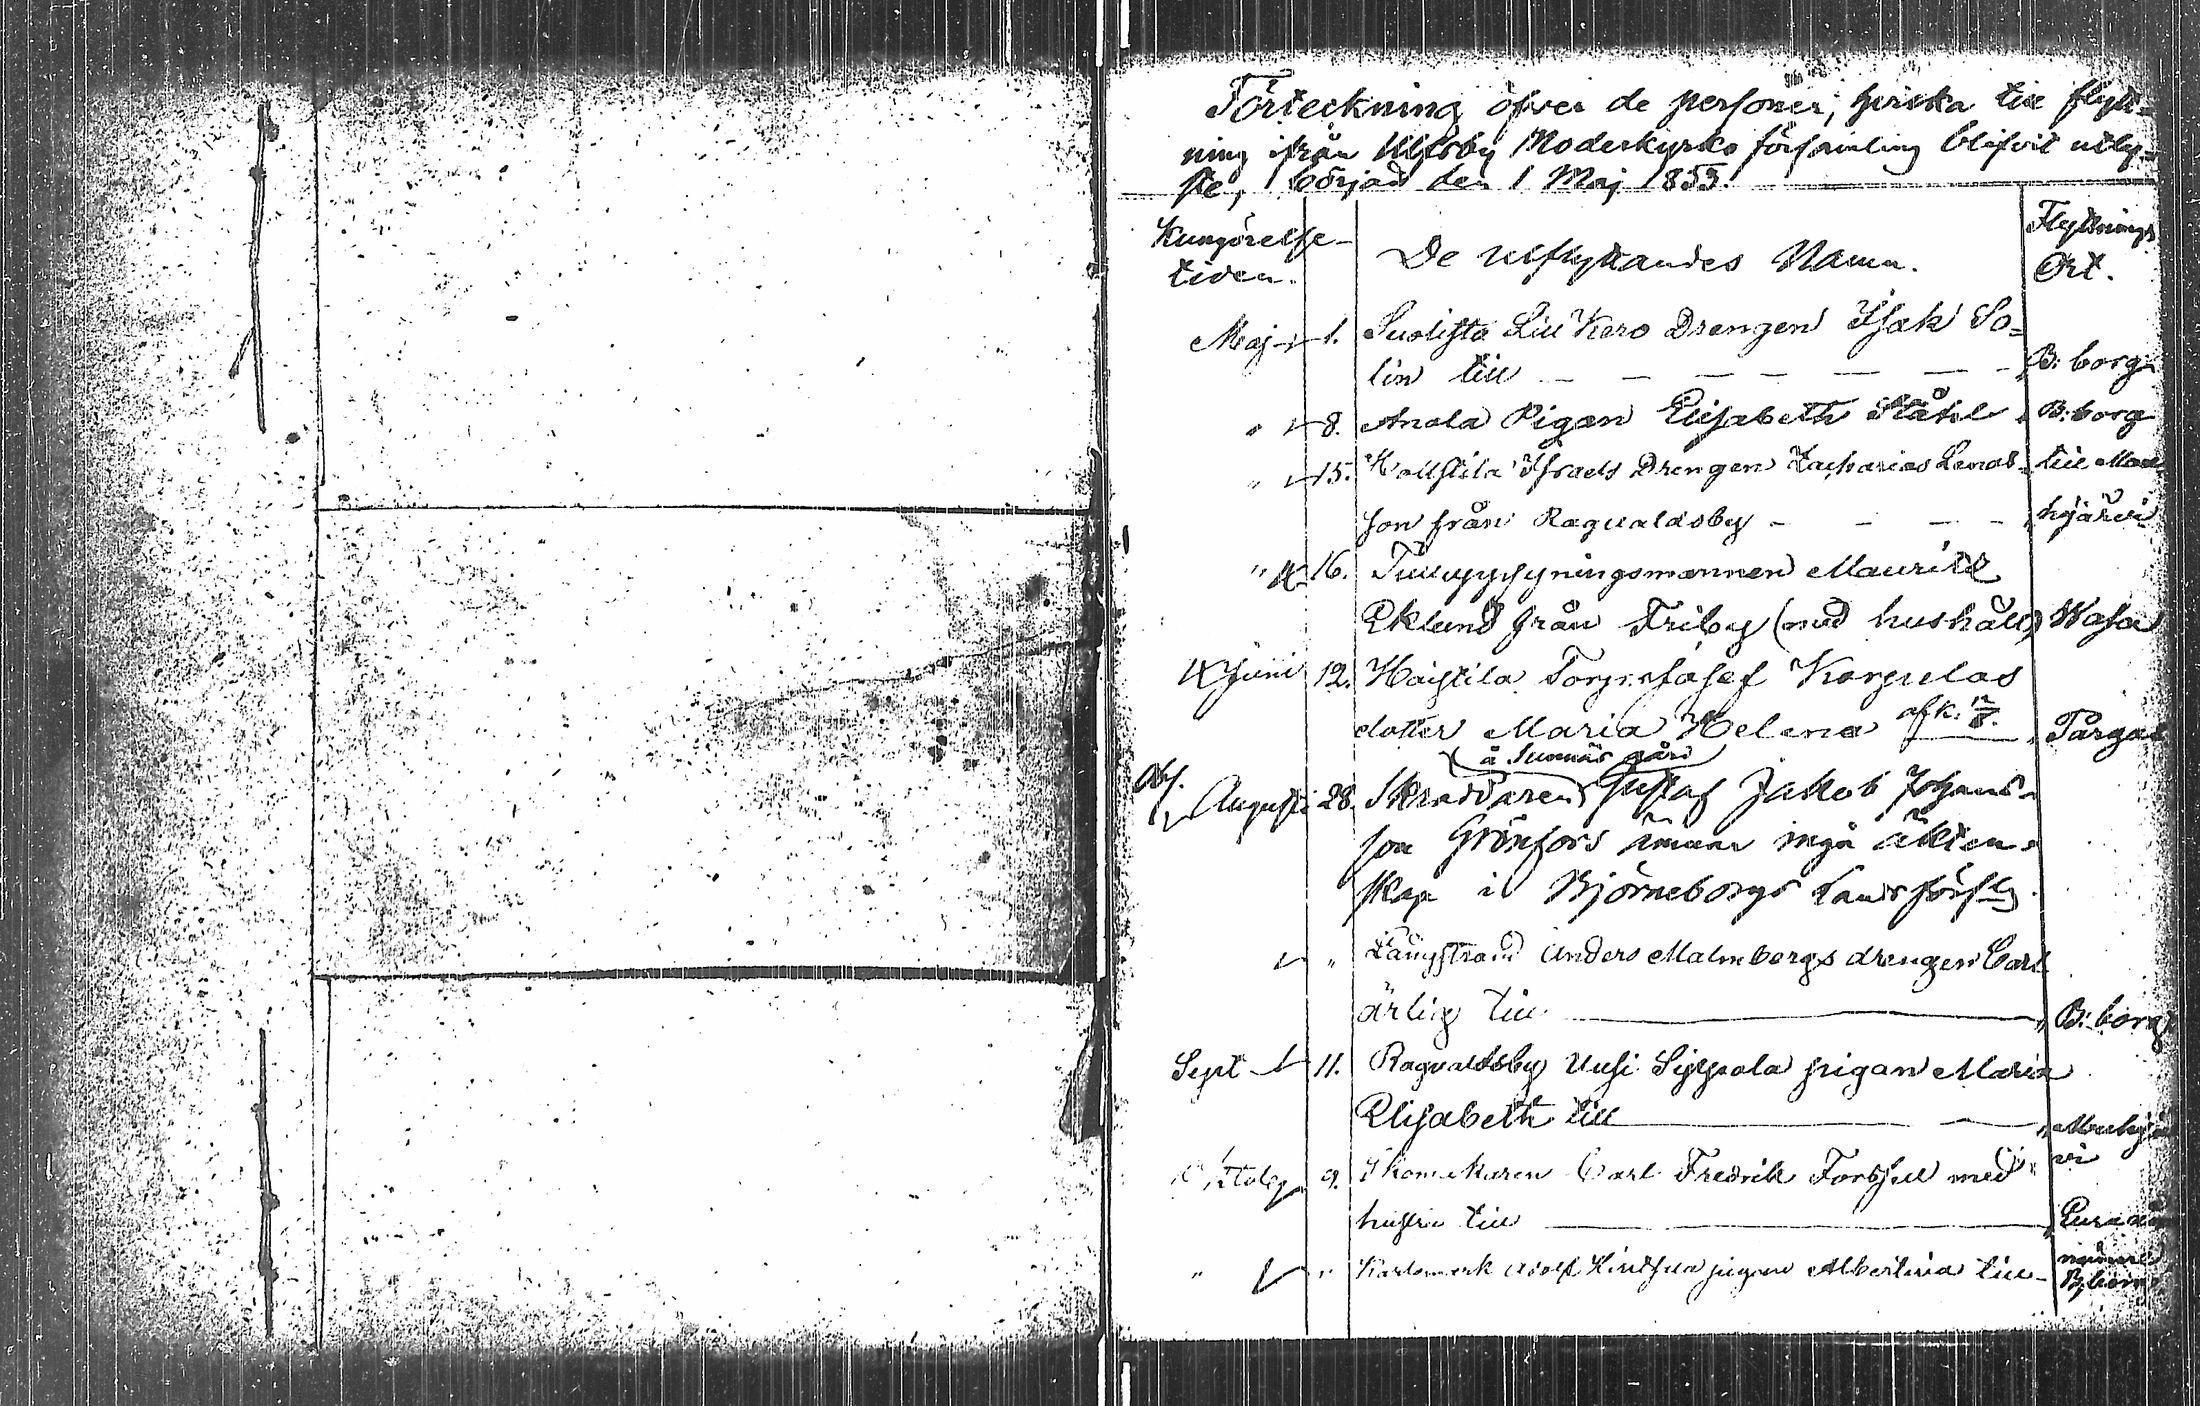 Förteckning öfver de personer, hvilka till flytt-
ning ifrån Ulfsby Moderkyrko församling blifvit utly-
ste, börjad den 1 Maj 1853.
Kungörelse-
tiden.
De utflyttandes Namn.
Flyttnings
Ort.
Maj 1. Suolista Lill Kero Drengen Isak So-
lin till B:borg
" 8. Anola Pigan Elisabeth Ståhl B:borg
" 15. Israels Drengen Zacharias
son från Ragvaldsby
" 16. Tulluppsyningsmannen Mauritz
Eklund från Friby (med hushåll) Wasa
Juni 12. Haistila Torp Josef Korpelas
dotter Maria Helena afk. 12/8.
å Sunnäs gård
Augusti 28. Skräddaren Gustaf Jakob Johans-
son Grönfors ämnar ingå äkten-
skap i Björneborgs Landsförsling
" Långstrand Anders Malmbergs drengen Carl
Ärlig till B:borg
Sept 11. Ragvaldsby Uusi Syppola pigan Maria
Elisabeth till
vi
Oktob 9. Skomakaren Carl Fredrik Forssell med
hustru till Eura
" " Karlsmark Adolf pigan Albertina till